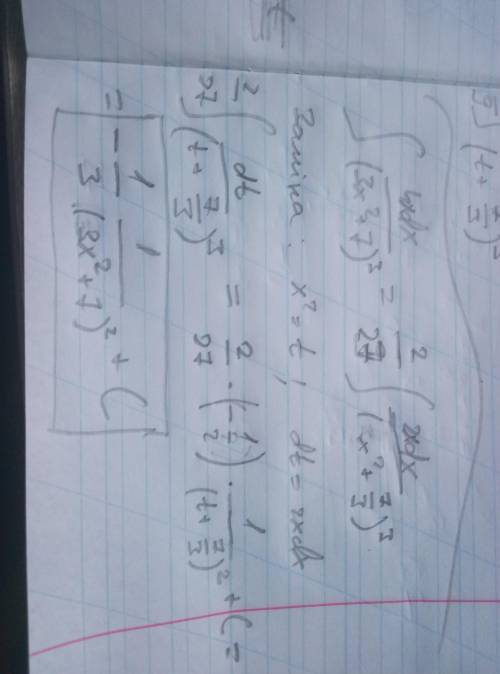 ∫ 4xdx / (3x²+7)³ = 2/27 ∫ 2xdx / (x² + 7/3)³
Заміна: x² = t; dt = 2xdx
2/27 ∫ dt / (t + 7/3)³ = 2/27 · (-1/2) · 1 / (t + 7/3)² + C =
= -1/3 1 / (3x² + 7)² + C